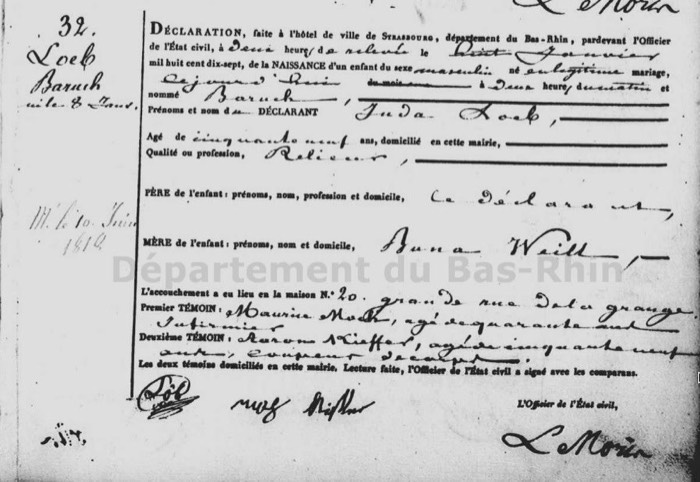 Le Morin
32.
Loeb
Baruch
né le 8 Janv.
M. le 10 Juin
1818
DÉCLARATION, faite à l'hôtel de ville de STRASBOURG, département du Bas-Rhin, pardevant l'Officier
de l'État civil, à deux heures de relevée le huit Janvier
mil huit cent dix-sept, de la NAISSANCE d'un enfant du sexe masculin né en légitime mariage,
cejourd'hui du mois à deux heures du matin et
nommé Baruch,
Prénoms et nom du DÉCLARANT Juda Loeb,
Agé de cinquante neuf ans, domicilié en cette mairie,
Qualité ou profession, Relieur,
PÈRE de l'enfant : prénoms, nom, profession et domicile, le déclarant,
MÈRE de l'enfant : prénoms, nom et domicile, Buna Weill,
Département du Bas-Rhin
L'accouchement a eu lieu en la maison N.° 20. grande rue de la grange.
Premier TÉMOIN : Maurice Moch, agé de quarante ans
Infirmier
Deuxième TÉMOIN : Aaron Kieffer, agé de cinquante neuf
ans,
Les deux témoins domiciliés en cette mairie. Lecture faite, l'Officier de l'État civil a signé avec les comparans.
L'Officier de l'État civil,
Le Morin